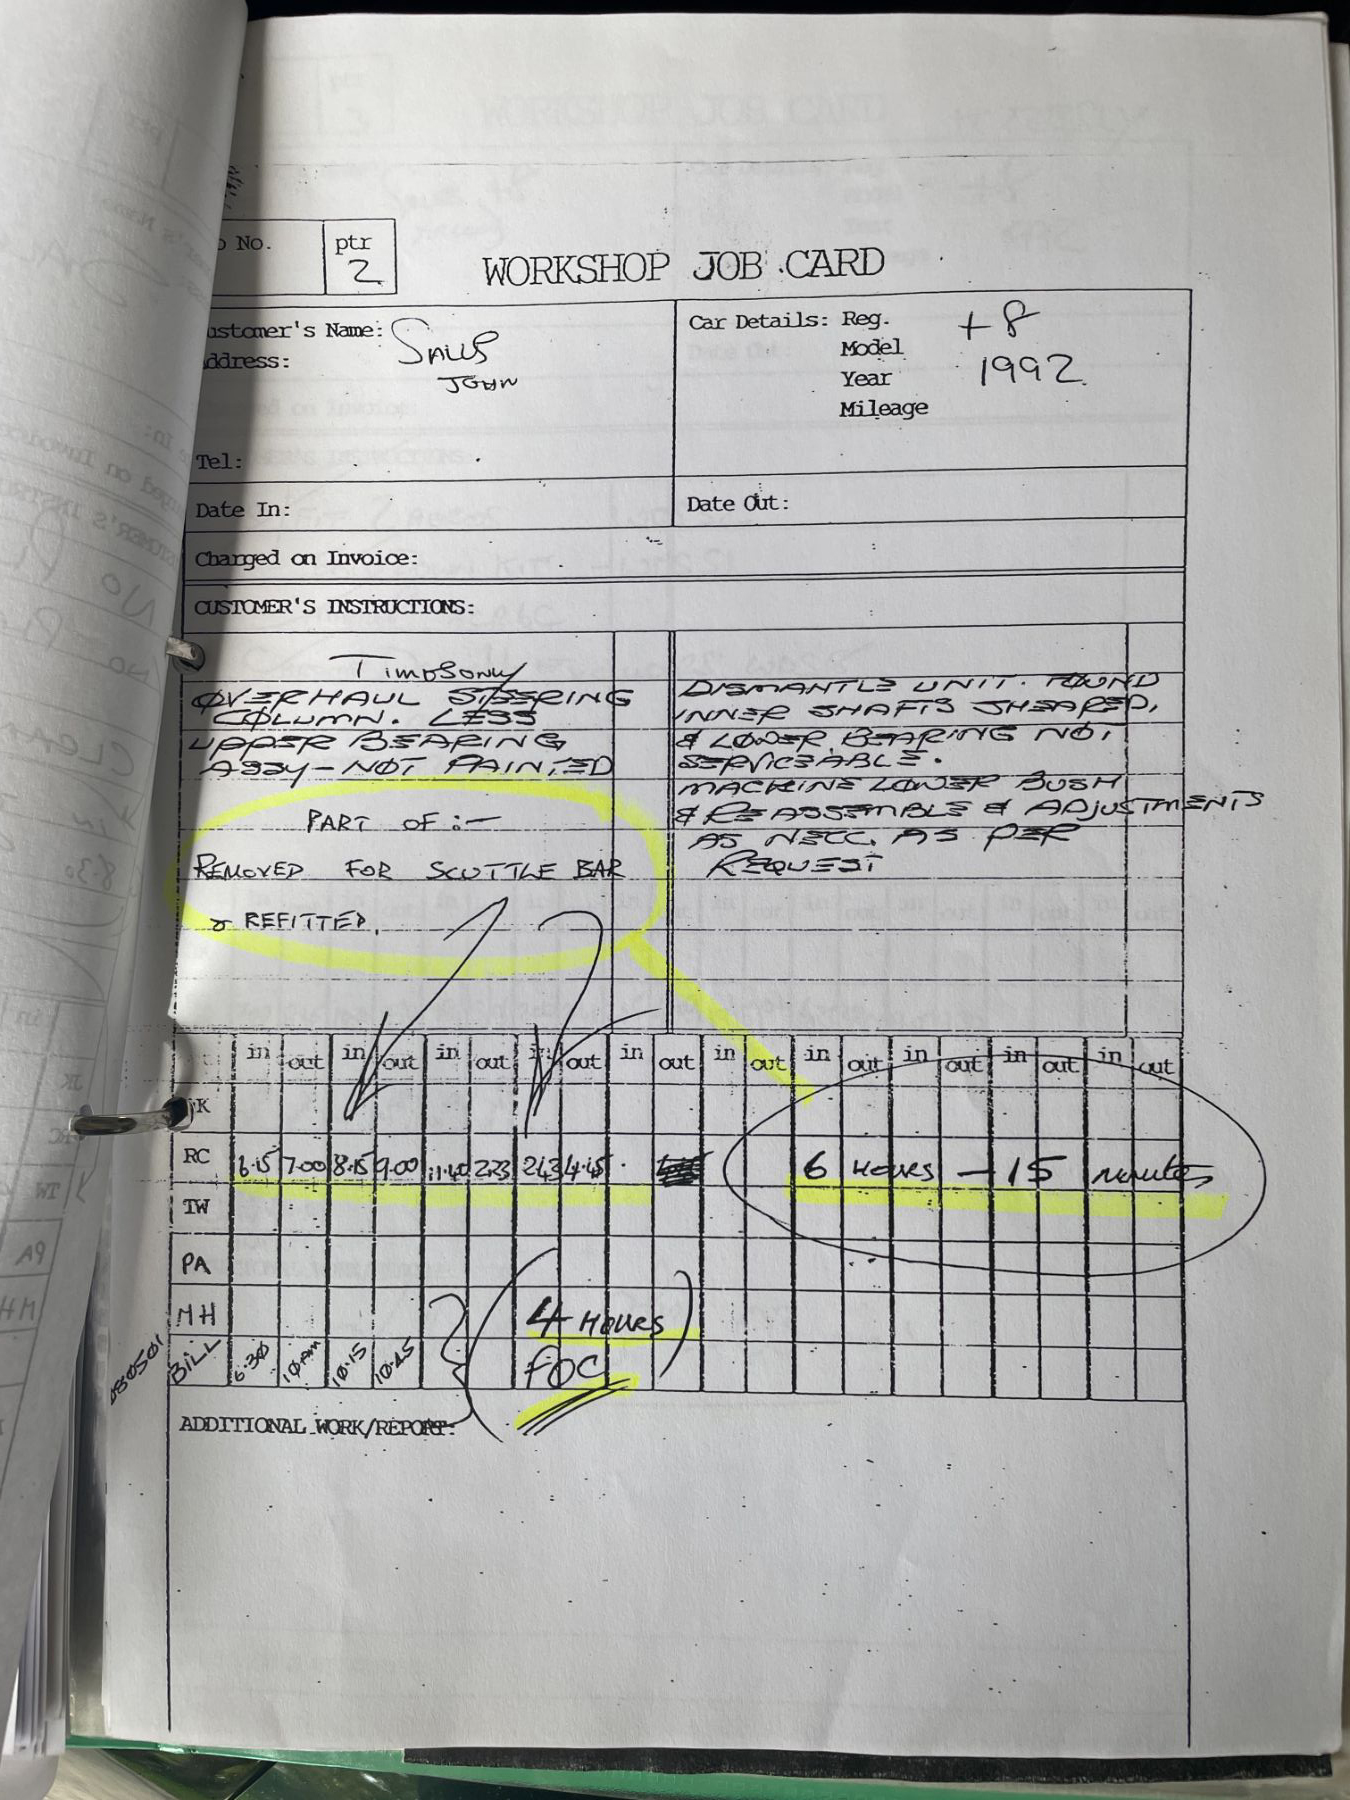 No.
ptr
2
WORKSHOP JOB CARD
ustomer's Name:
ddress:
JOHN
Tel:
Car Details: Reg.
Model
Year
Mileage
+8
1992
Date In:
Date Out:
Charged on Invoice:
CUSTOMER'S INSTRUCTIONS:
OVERHAUL STEERING
COLUMN. LESS
UPPER BEARING
ASSY-NOT PAINTED
PART OF :-
REMOVED FOR SCUTTLE BAR
& REFITTED.
DISMANTLE UNIT. FOUND
INNER SHAFTS SHEARED,
& LOWER BEARING NOT
SERVICEABLE.
MACHINE LOWER BUSH
& REASSEMBLE & ADJUSTMENTS
AS NECC. AS PER
REQUEST
in out in out in out in out in out in out in out in out in out in out
JK
RC 6.15 7.00 8.15 9.00 11.40 2.23 2.43 4.45 6 HOURS - 15 minutes
TW
PA
MH 4 HOURS
BILL 6.30 10 AM 10.15 10.45 FOC
ADDITIONAL WORK/REPORT: